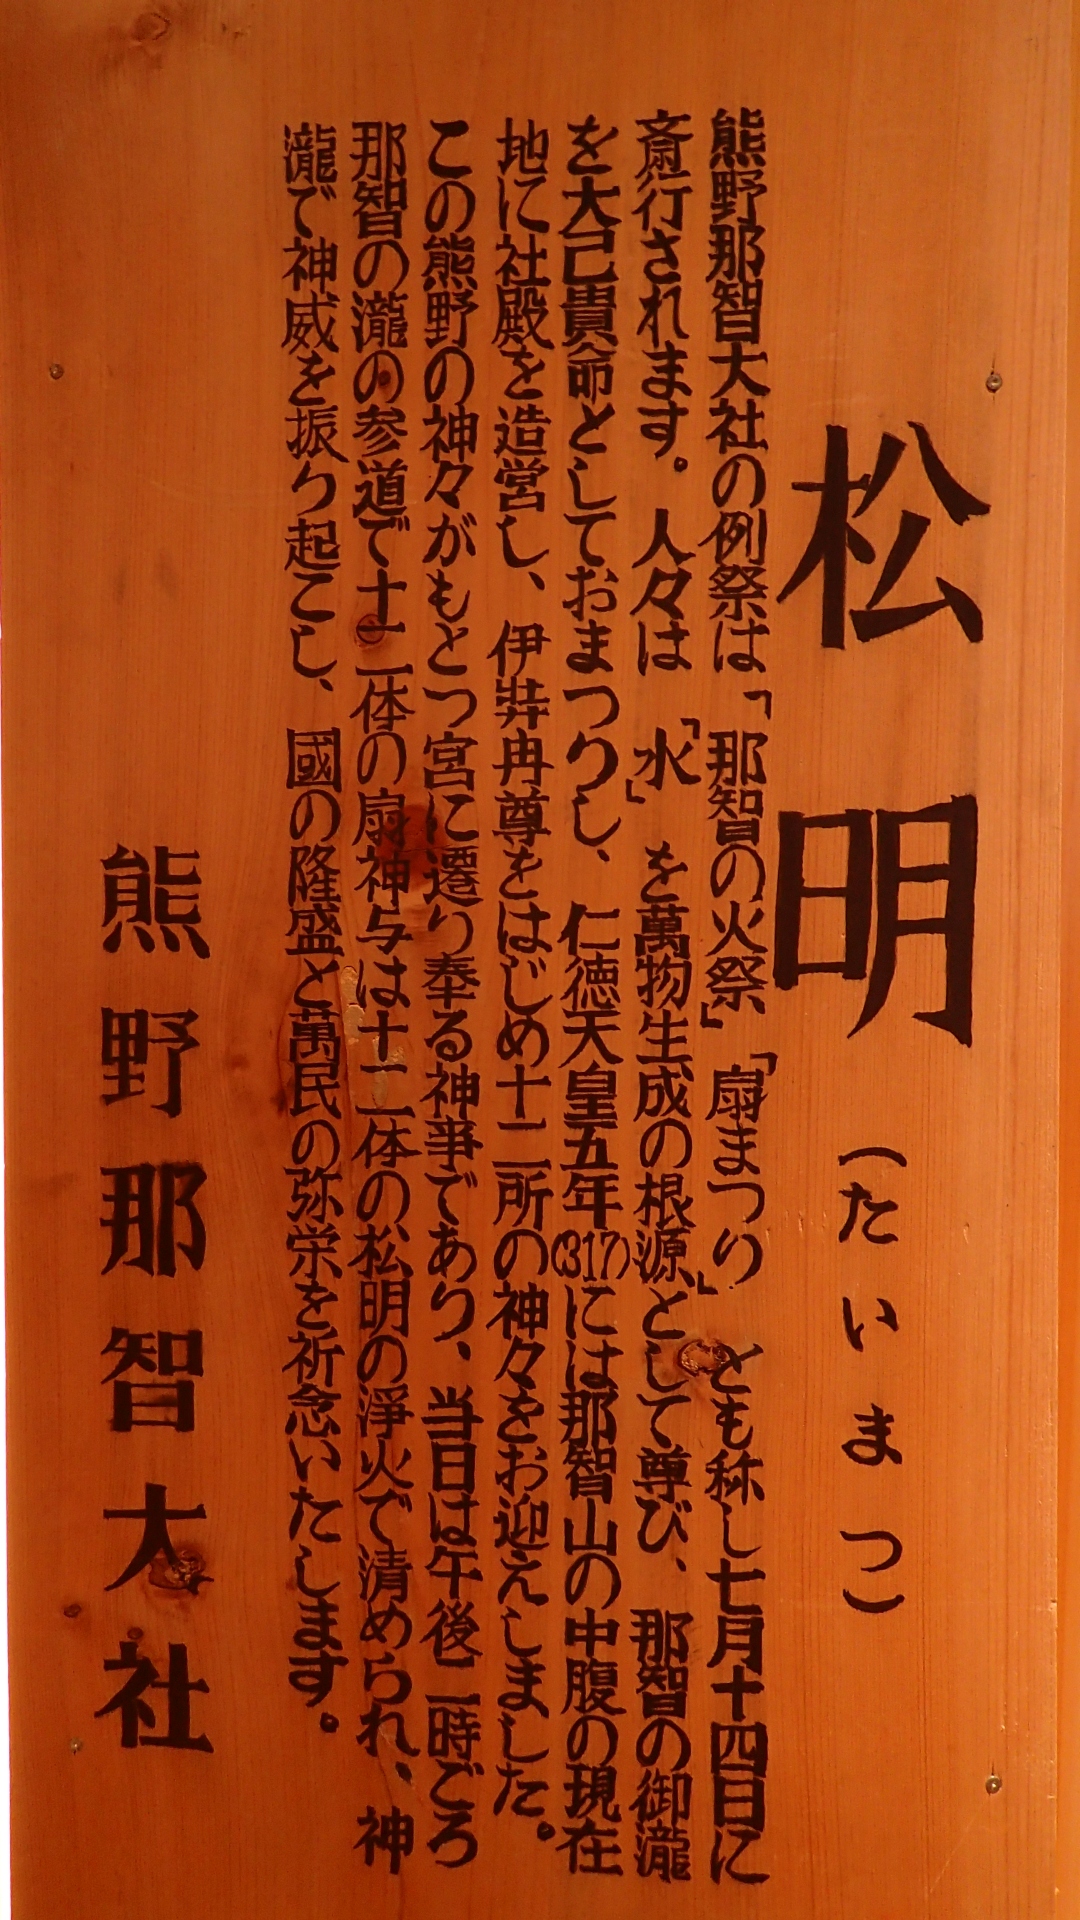 松明(たいまつ)
熊野那智大社の例祭は「那智の火祭」「扇まつり」とも称し七月十四日に
斎行されます。人々は「水」を萬物生成の根源として尊び、那智の御瀧
を大己貴命としておまつりし、仁徳天皇五年(317)には那智山の中腹の現在
地に社殿を造営し、伊弉冉尊をはじめ十二所の神々をお迎えしました。
この熊野の神々がもとつ宮に還り奉る神事であり、当日は午後二時ごろ
那智の瀧の参道で十二体の扇神与は十二体の松明の淨火で清められ、神
瀧で神威を振り起こし、國の隆盛と萬民の弥栄を祈念いたします。
熊野那智大社